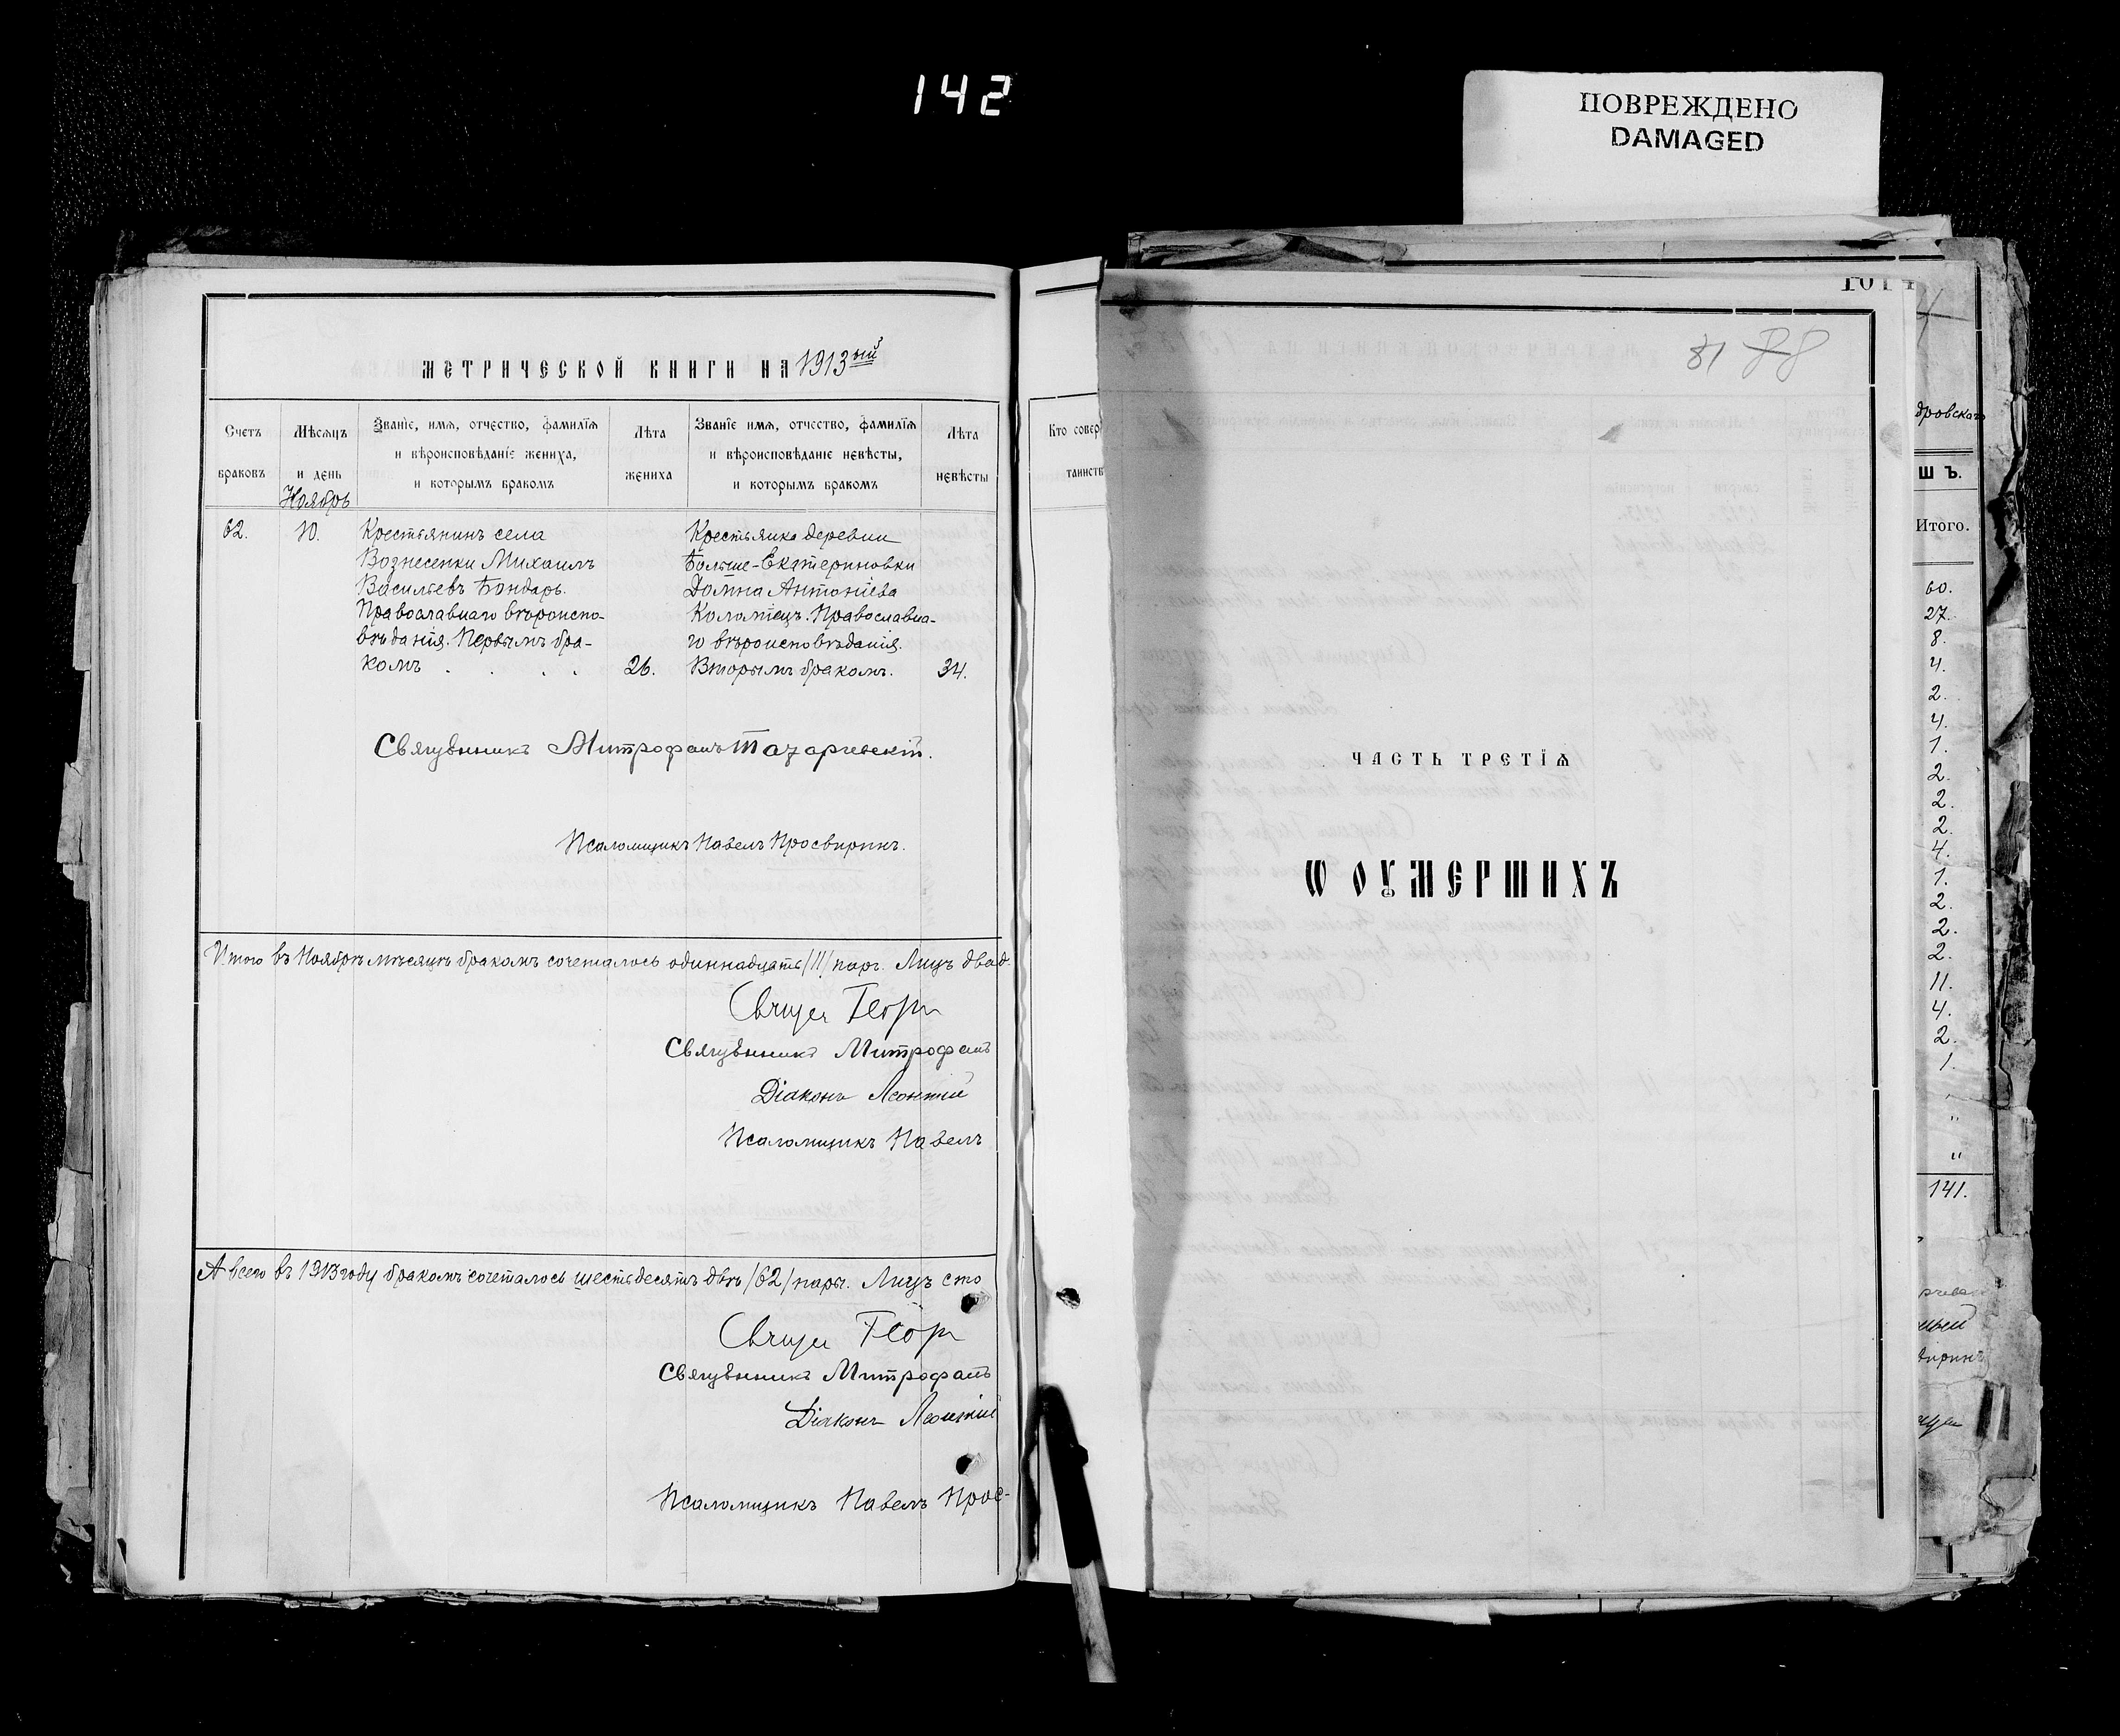 142
ПОВРЕЖДЕНО
DAMAGED
МЕТРИЧЕСКОЙ КНИГИ НА 1913ый
Счетъ браковъ
Мѣсяцъ и день
Званіе, имя, отчество, фамилія и вѣроисповѣданіе жениха, и которымъ бракомъ
Лѣта жениха
Званіе имя, отчество, фамилія и вѣроисповѣданіе невѣсты, и которымъ бракомъ
Лѣта невѣсты
Ноябрь
62.
10.
Крестьянинъ села
Вознесенки Михаилъ
Васильевъ Бондарь.
Православнаго вѣроиспо-
вѣданія. Первымъ бра-
комъ . . . .
26.
Крестьянка деревни
Больше-Екатериновки
Домна Антоніева
Коломіецъ. Православна-
го вѣроисповѣданія.
Вторымъ бракомъ.
34.
Священникъ Митрофанъ
Псаломщикъ Павелъ Просвиринъ.
Итого въ Ноябрѣ мѣсяцѣ бракомъ сочеталось одиннадцать /11/ паръ. Лицъ двад-
Священникъ Митрофанъ
Діаконъ Леонтій
Псаломщикъ Павелъ
А всего въ 1913 году бракомъ сочеталось шестьдесятъ двѣ /62/ пары. Лицъ сто
Священникъ Митрофанъ
Діаконъ Леонтій
Псаломщикъ Павелъ Прос-
Кто совер
таинств
81 88
ЧАСТЬ ТРЕТІЯ
Ѡ ОУМЕРШИХЪ
дровскаго
Ш Ъ.
Итого.
60.
27.
8.
4.
2.
4.
1.
2.
2.
2.
4.
1.
2.
2.
2.
11.
4.
2.
1.
"
"
141.